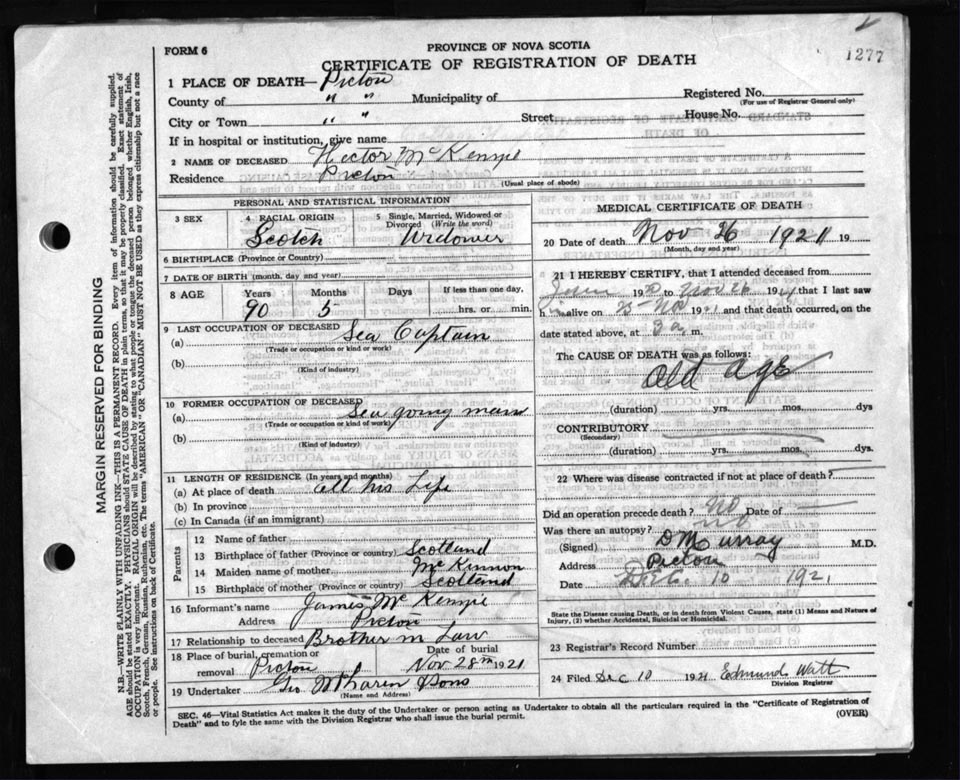 FORM 6
PROVINCE OF NOVA SCOTIA
CERTIFICATE OF REGISTRATION OF DEATH
1277
1 PLACE OF DEATH— Pictou
Registered No.
(For use of Registrar General only)
County of " " Municipality of
City or Town " " Street; House No.
If in hospital or institution, give name
2 NAME OF DECEASED Hector McKenzie
Residence Pictou
(Usual place of abode)
PERSONAL AND STATISTICAL INFORMATION
3 SEX
4 RACIAL ORIGIN Scotch
5 Single, Married, Widowed or Divorced (Write the word) Widower
6 BIRTHPLACE (Province or Country)
7 DATE OF BIRTH (month, day and year)
8 AGE Years Months Days If less than one day,
90 5 hrs. or min.
9 LAST OCCUPATION OF DECEASED
(a) Sea Captain
(Trade or occupation or kind or work)
(b)
(Kind of industry)
10 FORMER OCCUPATION OF DECEASED
(a) Sea going man
(Trade or occupation or kind or work)
(b)
(Kind of industry)
11 LENGTH OF RESIDENCE (In years and months)
(a) At place of death all his Life
(b) In province
(c) In Canada (if an immigrant)
Parents
12 Name of father
13 Birthplace of father (Province or country) Scotland
14 Maiden name of mother McKinnon
15 Birthplace of mother (Province or country) Scotland
16 Informant's name James McKenzie
Address Pictou
17 Relationship to deceased Brother in Law
18 Place of burial, cremation or removal Pictou
Date of burial
Nov 28th 1921
19 Undertaker Geo Sons
(Name and Address)
MEDICAL CERTIFICATE OF DEATH
20 Date of death Nov 26 1921 19
(Month, day and year)
21 I HEREBY CERTIFY, that I attended deceased from
19 to Nov 26 19 that I last saw
h alive on 25 Nov 1921 and that death occurred, on the
date stated above, at 3 a, m.
The CAUSE OF DEATH was as follows:
Old Age
(duration) yrs. mos. dys
CONTRIBUTORY
(Secondary)
(duration) yrs. mos. dys.
22 Where was disease contracted if not at place of death?
Did an operation precede death? No Date of —
Was there an autopsy? No
(Signed) D Murray M.D.
Address Pictou
Date Dec. 10 1921
State the Disease causing Death, or in death from Violent Causes, state (1) Means and Nature of
Injury, (2) whether Accidental, Suicidal or Homicidal.
23 Registrar's Record Number
24 Filed Dec 10 1921 Edmund Watt
Division Registrar
SEC. 46—Vital Statistics Act makes it the duty of the Undertaker or person acting as Undertaker to obtain all the particulars required in the "Certificate of Registration of
Death" and to fyle the same with the Division Registrar who shall issue the burial permit.
(OVER)
MARGIN RESERVED FOR BINDING
N.B.—WRITE PLAINLY WITH UNFADING INK—THIS IS A PERMANENT RECORD. Every item of information should be carefully supplied.
AGE should be stated EXACTLY. PHYSICIANS should STATE CAUSE OF DEATH in plain terms, so that it may be properly classified. Exact statement of
OCCUPATION is very important. RACIAL ORIGIN will be described by stating to what people or tongue the deceased person belonged whether English, Irish,
Scotch, French, German, Russian, Ruthenian, etc. The terms "AMERICAN" OR "CANADIAN" MUST NOT BE USED as they express citizenship but not a race
or people. See instructions on back of Certificate.